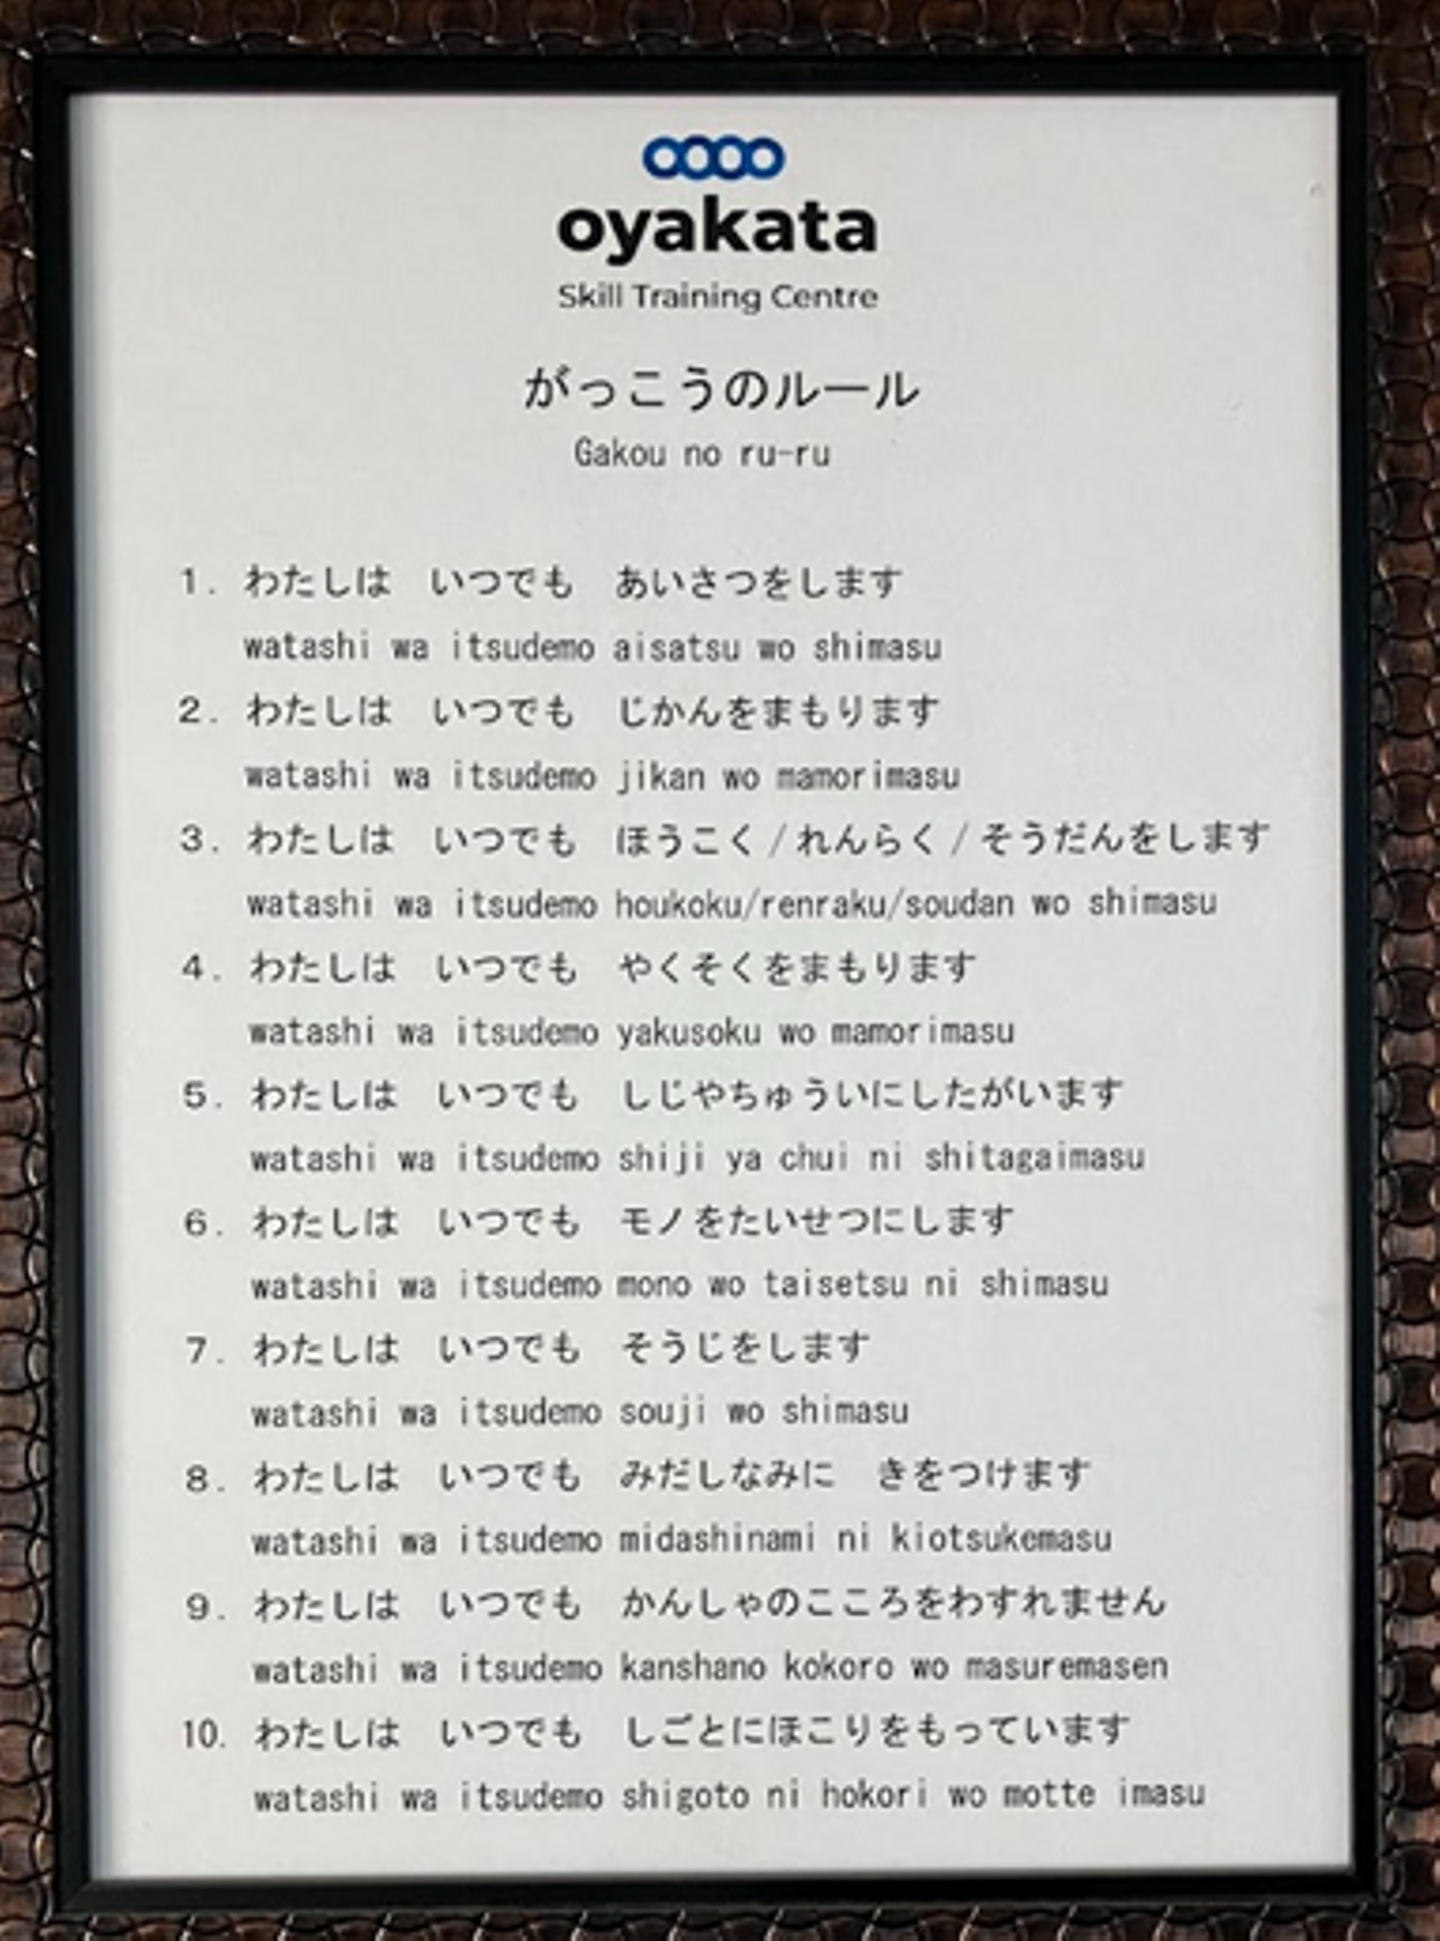 oyakata
Skill Training Centre
がっこうのルール
Gakou no ru-ru
1. わたしは　いつでも　あいさつをします
watashi wa itsudemo aisatsu wo shimasu
2. わたしは　いつでも　じかんをまもります
watashi wa itsudemo jikan wo mamorimasu
3. わたしは　いつでも　ほうこく/れんらく/そうだんをします
watashi wa itsudemo houkoku/renraku/soudan wo shimasu
4. わたしは　いつでも　やくそくをまもります
watashi wa itsudemo yakusoku wo mamorimasu
5. わたしは　いつでも　しじやちゅういにしたがいます
watashi wa itsudemo shiji ya chui ni shitagaimasu
6. わたしは　いつでも　モノをたいせつにします
watashi wa itsudemo mono wo taisetsu ni shimasu
7. わたしは　いつでも　そうじをします
watashi wa itsudemo souji wo shimasu
8. わたしは　いつでも　みだしなみに　きをつけます
watashi wa itsudemo midashinami ni kiotsukemasu
9. わたしは　いつでも　かんしゃのこころをわすれません
watashi wa itsudemo kanshano kokoro wo masuremasen
10. わたしは　いつでも　しごとにほこりをもっています
watashi wa itsudemo shigoto ni hokori wo motte imasu